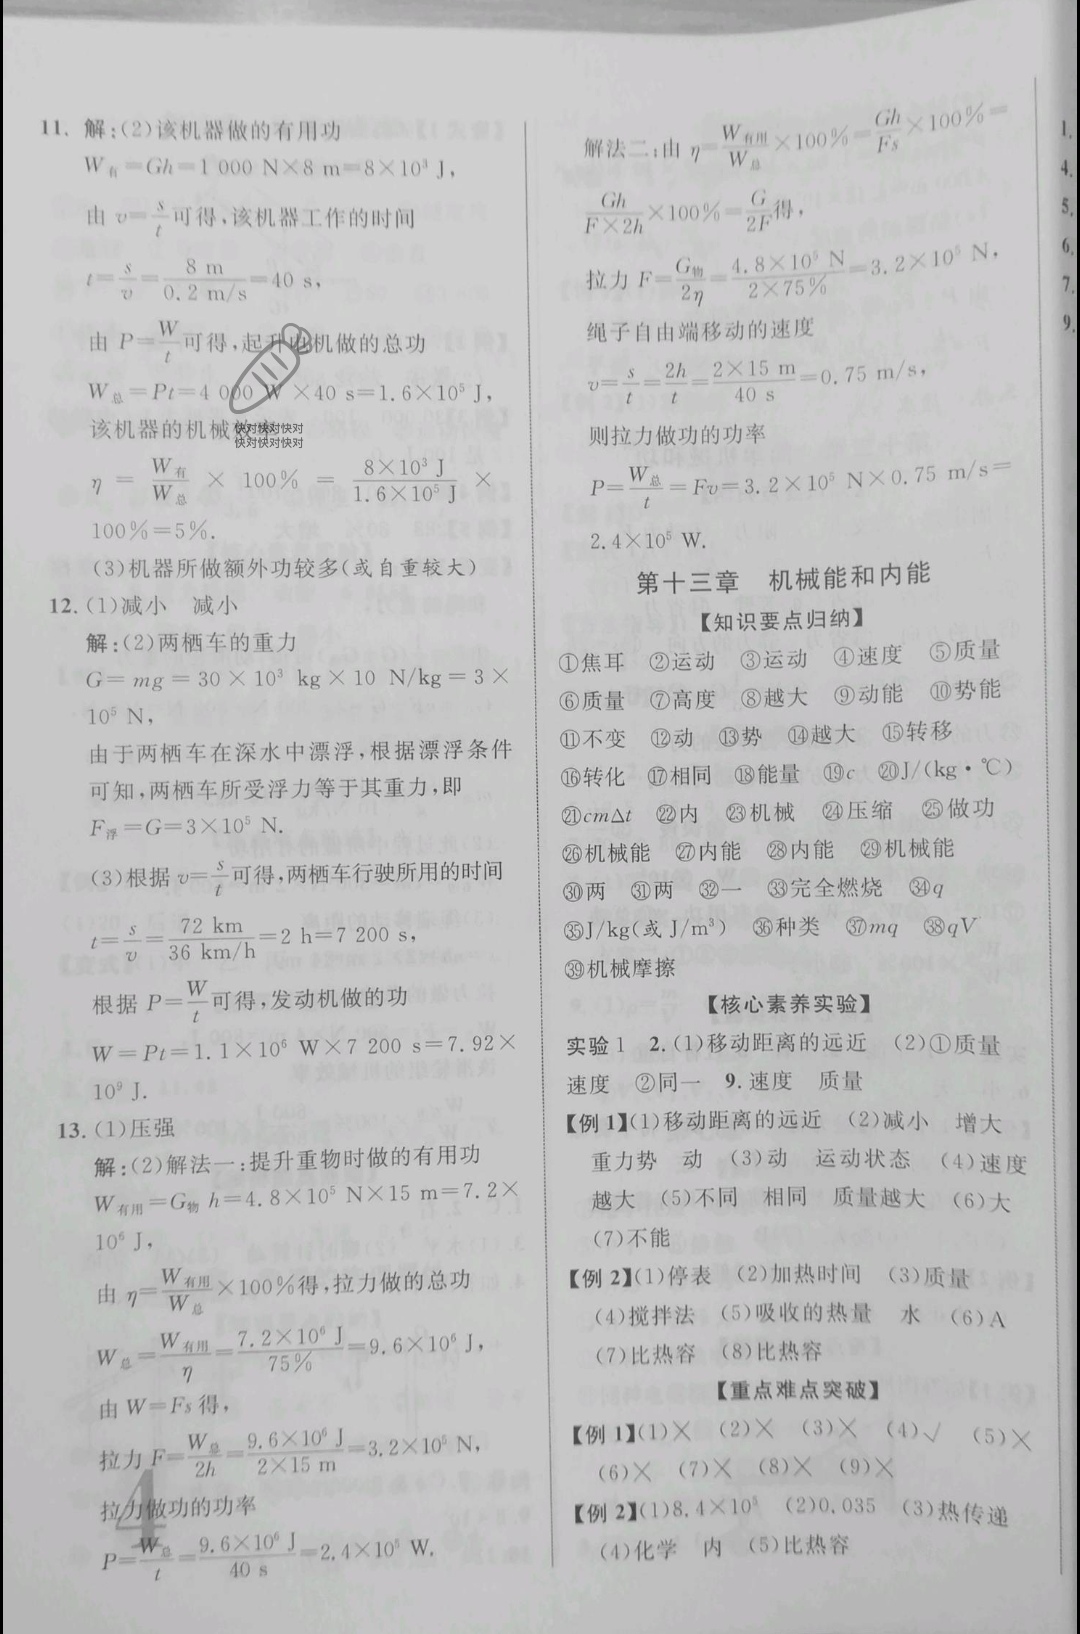 11. 解:(2)该机器做的有用功
W有=Gh=1 000 N×8 m=8×10³ J,
由 v=s/t可得,该机器工作的时间
t=s/v=8 m/0.2 m/s=40 s,
由 P=W/t可得,起升电机做的总功
W总=Pt=4 000 W×40 s=1.6×10⁵ J,
该机器的机械效率
快对快对快对
快对快对快对
η = W有/W总 × 100% = 8×10³ J/1.6×10⁵ J ×
100%=5%.
(3)机器所做额外功较多(或自重较大)
12. (1)减小 减小
解:(2)两栖车的重力
G= mg = 30 × 10³ kg × 10 N/kg = 3 ×
10⁵ N,
由于两栖车在深水中漂浮,根据漂浮条件
可知,两栖车所受浮力等于其重力,即
F浮=G=3×10⁵ N.
(3)根据 v=s/t可得,两栖车行驶所用的时间
t=s/v=72 km/36 km/h=2 h=7 200 s,
根据 P=W/t可得,发动机做的功
W=Pt=1.1×10⁶ W×7 200 s=7.92×
10⁹ J.
13. (1)压强
解:(2)解法一:提升重物时做的有用功
W有用=G物 h=4.8×10⁵ N×15 m=7.2×
10⁶ J,
由 η=W有用/W总×100%得,拉力做的总功
W总=W有用/η=7.2×10⁶ J/75%=9.6×10⁶ J,
由 W=Fs 得,
拉力 F=W总/2h=9.6×10⁶ J/2×15 m=3.2×10⁵ N,
拉力做功的功率
P=W总/t=9.6×10⁶ J/40 s=2.4×10⁵ W.
4
解法二:由 η=W有用/W总×100%=Gh/Fs×100%=
Gh/F×2h×100%=G/2F得,
拉力 F=G物/2η=4.8×10⁵ N/2×75%=3.2×10⁵ N,
绳子自由端移动的速度
v=s/t=2h/t=2×15 m/40 s=0.75 m/s,
则拉力做功的功率
P=W总/t=Fv=3.2×10⁵ N×0.75 m/s=
2.4×10⁵ W.
第十三章 机械能和内能
【知识要点归纳】
①焦耳 ②运动 ③运动 ④速度 ⑤质量
⑥质量 ⑦高度 ⑧越大 ⑨动能 ⑩势能
⑪不变 ⑫动 ⑬势 ⑭越大 ⑮转移
⑯转化 ⑰相同 ⑱能量 ⑲c ⑳J/(kg·℃)
㉑cmΔt ㉒内 ㉓机械 ㉔压缩 ㉕做功
㉖机械能 ㉗内能 ㉘内能 ㉙机械能
㉚两 ㉛两 ㉜一 ㉝完全燃烧 ㉞q
㉟J/kg(或 J/m³) ㊱种类 ㊲mq ㊳qV
㊴机械摩擦
【核心素养实验】
实验 1 2. (1)移动距离的远近 (2)①质量
速度 ②同一 9. 速度 质量
【例 1】(1)移动距离的远近 (2)减小 增大
重力势 动 (3)动 运动状态 (4)速度
越大 (5)不同 相同 质量越大 (6)大
(7)不能
【例 2】(1)停表 (2)加热时间 (3)质量
(4)搅拌法 (5)吸收的热量 水 (6)A
(7)比热容 (8)比热容
【重点难点突破】
【例 1】(1)× (2)× (3)× (4)√ (5)×
(6)× (7)× (8)× (9)×
【例 2】(1)8.4×10⁵ (2)0.035 (3)热传递
(4)化学 内 (5)比热容
1.
4.
5.
6.
7.
9.